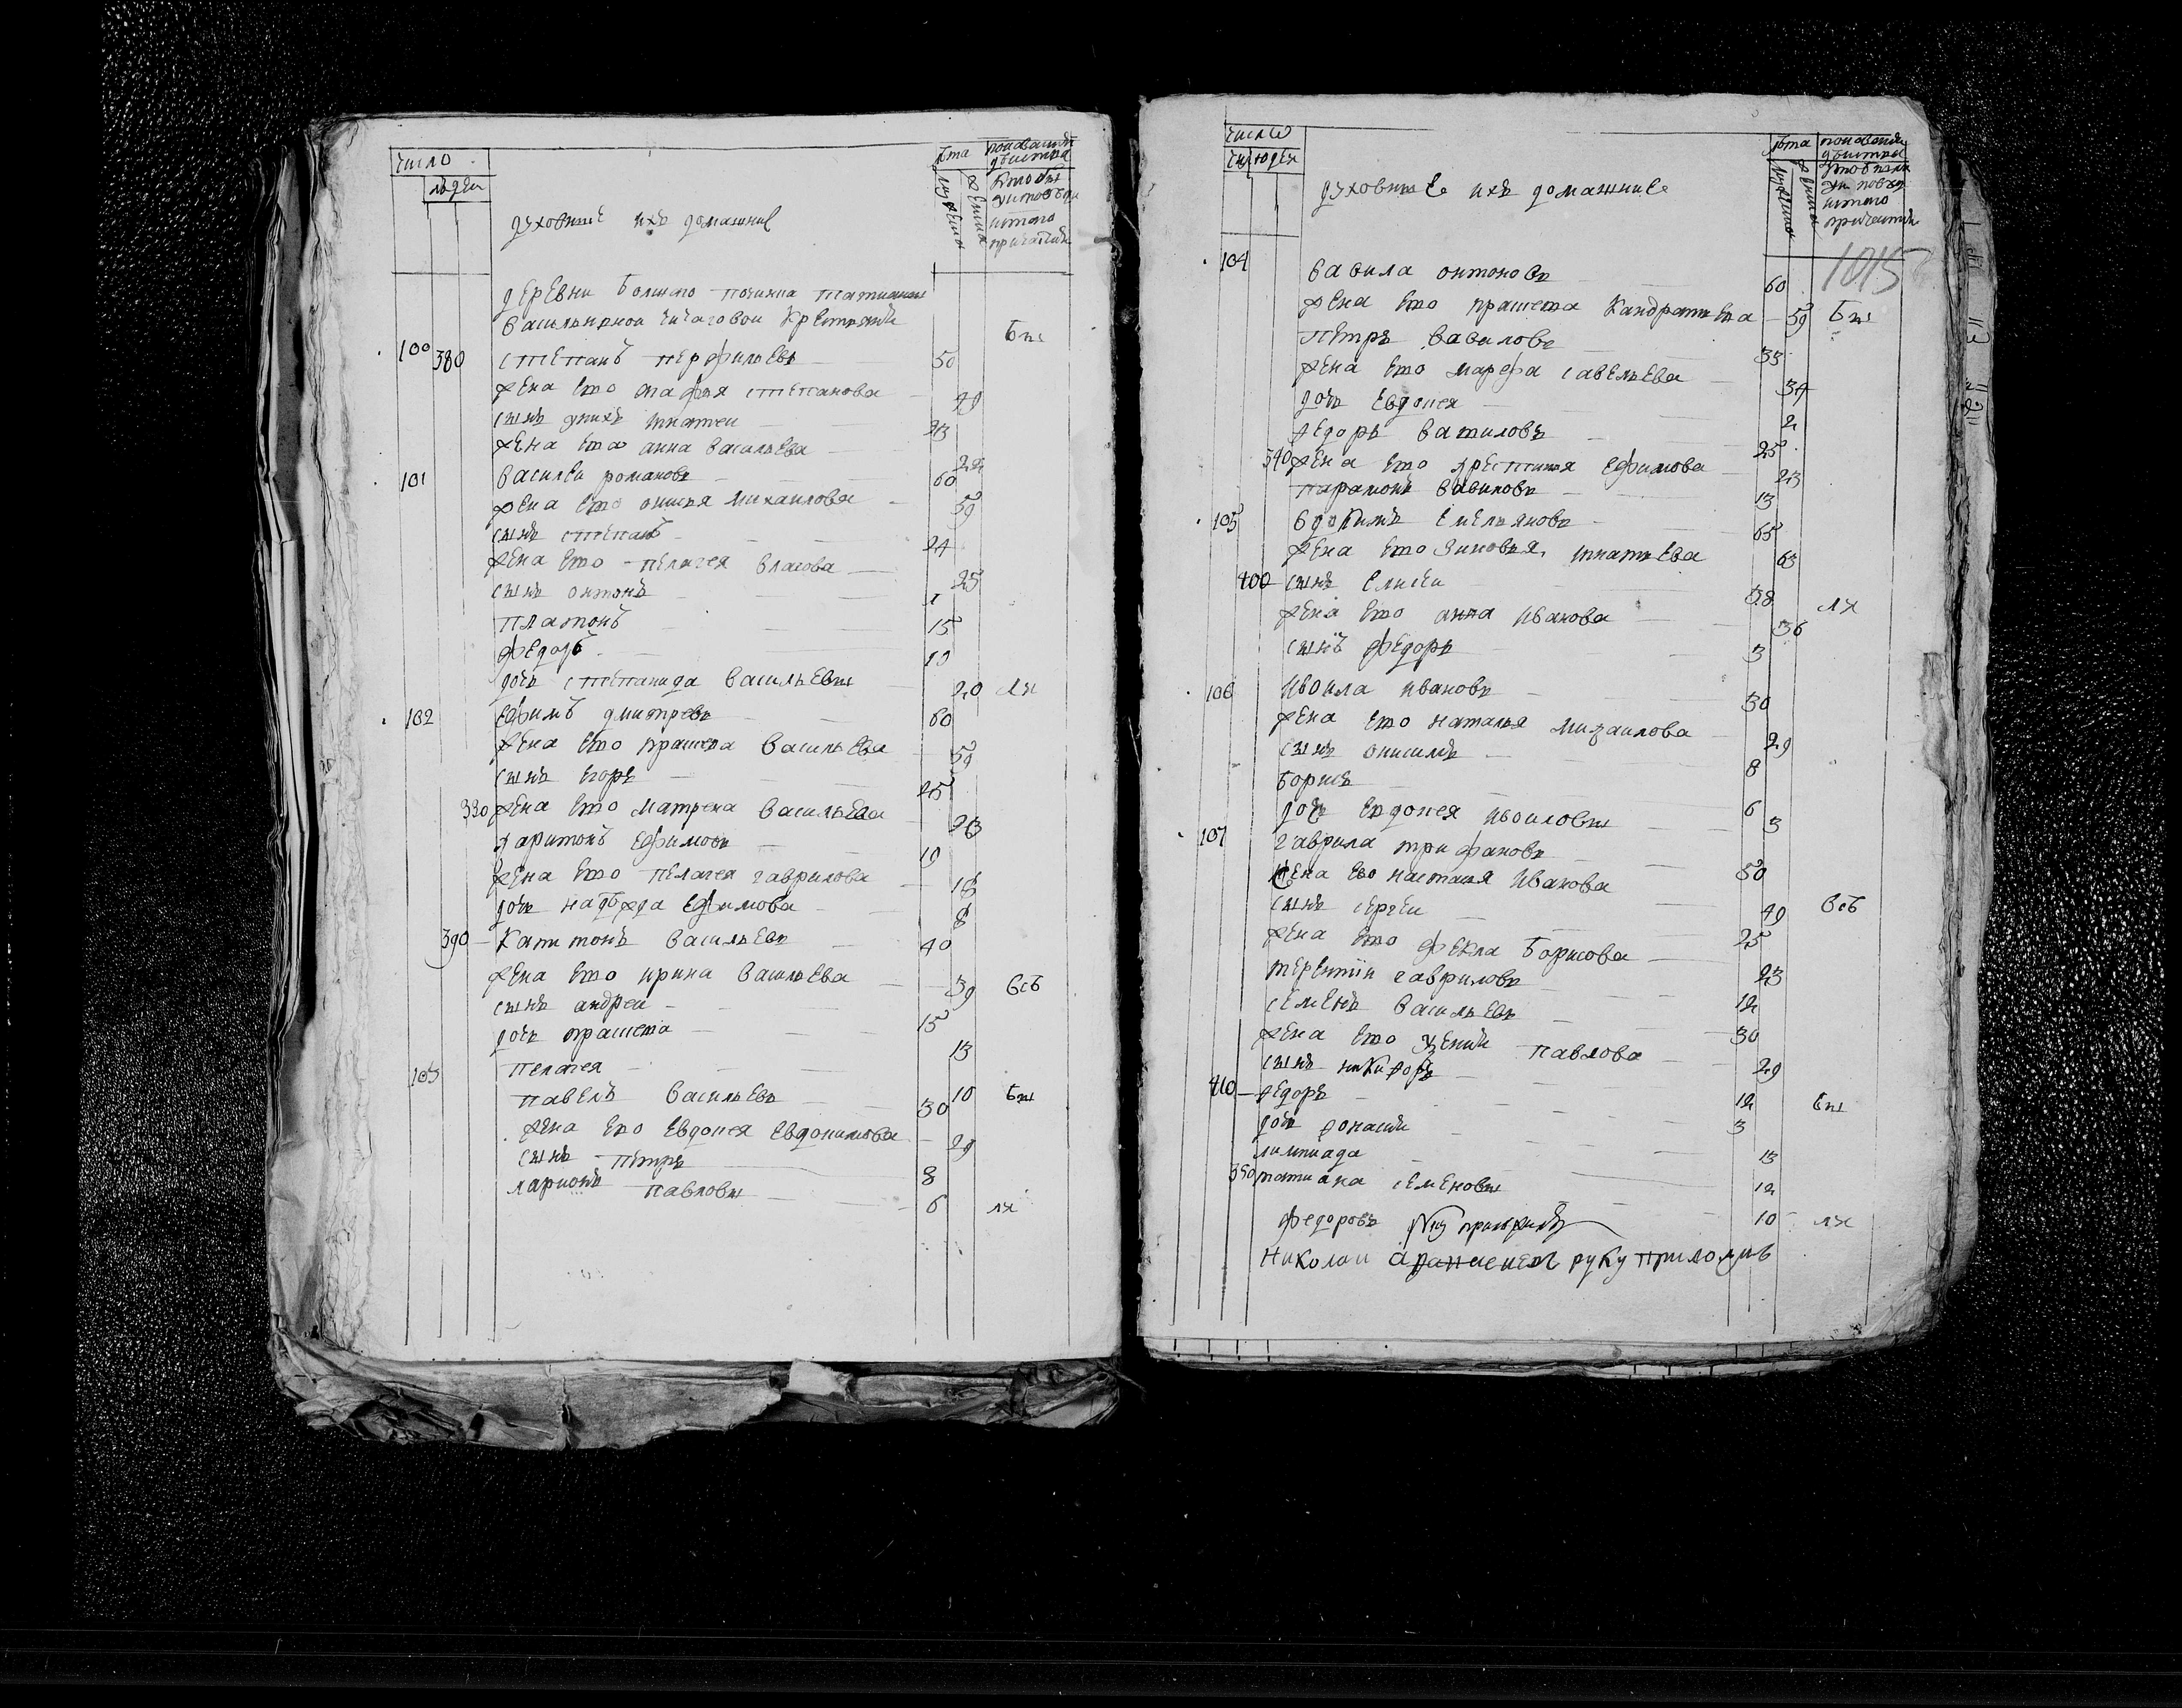 число
людеи
духовные ихъ домашние
лѣта
мужеска
женска
показание
действа
кто был
у исповеди
и святого
причастия
деревни Болшаго починка Татианы
Васильивнои Чичаговои крестьяня
Бы
100 380 степанъ перфильевъ 50
жена его агафья степанова 49
сынъ у нихъ игнатеи 23
жена его анна васильева 22
101 василеи романовъ 60
жена его онисья михаилова 59
сынъ степанъ 24
жена его пелагея власова 25
сынъ онтонъ 1
платонъ 15
федоръ 10
дочь степанида васильевы 20 ли
102 ефимъ дмитревъ 60
жена его прасковя васильева 59
сынъ егоръ 25
330 жена его матрена васильева 23
харитонъ ефимовъ 19
жена его пелагея гаврилова 18
дочь надѣжда ефимова 8
390 капитонъ васильевъ 40
жена его ирина васильева 39 всѣ
сынъ андреи 15
дочь прасковя 13
пелагея 10
103 павелъ васильевъ 30 бы
жена его евдокея евдокимова 29
сынъ петръ 8
ларионъ павловы 6 ли
число
людеи
духовные ихъ домашние
лѣта
мужеска
женска
показания
действа
1015
104 вавила онтоновъ 60
жена его прасковя кандратьева 59 Бы
петръ вавиловъ 35
жена его марфа савельева 34
дочь евдокея 2
федоръ вавиловъ 25
340 жена его хрестинья ефимова 23
парамонъ вавиловъ 13
105 евдокимъ емельяновъ 65
жена его зиновья игнатьева 63
400 сынъ елисеи 38
жена его анна иванова 36 ли
сынъ федоръ 3
106 ивоила ивановъ 30
жена его наталья михаилова 29
сынъ онисимъ 8
борисъ 6
дочь евдокея ивоиловы 3
107 гаврила трифановъ 50
жена его настасья иванова 49 всѣ
сынъ сергеи 25
жена его фекла борисова 23
терентии гавриловъ 12
семенъ васильевъ 30
жена его павлова 29
сынъ никифоръ 12
410 федоръ 3 бы
дочь 13
лимпиада 12
350 татиана семеновы 10 ли
федоровъ руку приложилъ
Николаи руку приложилъ